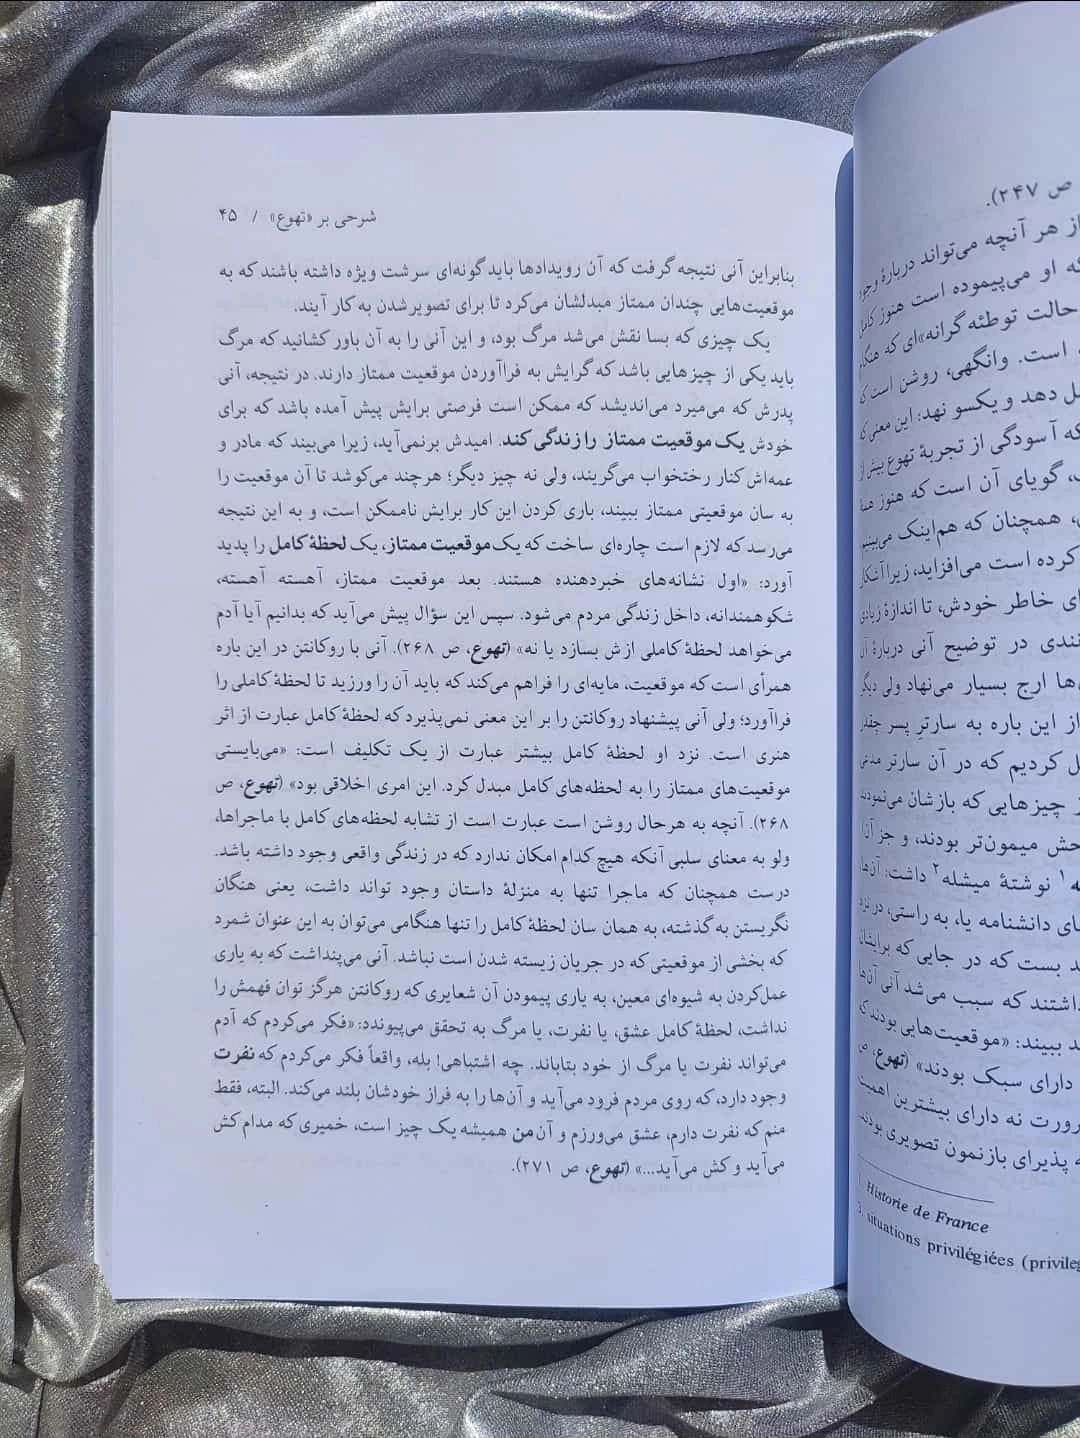 شرحی بر «تهوع» / ۴۵
بنابراین آنی نتیجه گرفت که آن رویدادها باید گونه‌ای سرشت ویژه داشته باشند که به
موقعیت‌هایی چندان ممتاز مبدلشان می‌کرد تا برای تصویرشدن به کار آیند.
یک چیزی که بسا نقش می‌شد مرگ بود، و این آنی را به آن باور کشانید که مرگ
باید یکی از چیزهایی باشد که گرایش به فراآوردن موقعیت ممتاز دارند. در نتیجه، آنی
پدرش که می‌میرد می‌اندیشد که ممکن است فرصتی برایش پیش آمده باشد که برای
خودش یک موقعیت ممتاز را زندگی کند. امیدش برنمی‌آید، زیرا می‌بیند که مادر و
عمه‌اش کنار رختخواب می‌گریند، ولی نه چیز دیگر؛ هرچند می‌کوشد تا آن موقعیت را
به سان موقعیتی ممتاز ببیند، باری کردن این کار برایش ناممکن است، و به این نتیجه
می‌رسد که لازم است چاره‌ای ساخت که یک موقعیت ممتاز، یک لحظهٔ کامل را پدید
آورد: «اول نشانه‌های خبردهنده هستند. بعد موقعیت ممتاز، آهسته آهسته،
شکوهمندانه، داخل زندگی مردم می‌شود. سپس این سؤال پیش می‌آید که بدانیم آیا آدم
می‌خواهد لحظهٔ کاملی ازش بسازد یا نه» (تهوع، ص ۲۶۸). آنی با روکانتن در این باره
همرأی است که موقعیت، مایه‌ای را فراهم می‌کند که باید آن را ورزید تا لحظهٔ کاملی را
فراآورد؛ ولی آنی پیشنهاد روکانتن را بر این معنی نمی‌پذیرد که لحظهٔ کامل عبارت از اثر
هنری است. نزد او لحظهٔ کامل بیشتر عبارت از یک تکلیف است: «می‌بایستی
موقعیت‌های ممتاز را به لحظه‌های کامل مبدل کرد. این امری اخلاقی بود» (تهوع، ص
۲۶۸). آنچه به هرحال روشن است عبارت است از تشابه لحظه‌های کامل با ماجراها،
ولو به معنای سلبی آنکه هیچ کدام امکان ندارد که در زندگی واقعی وجود داشته باشد.
درست همچنان که ماجرا تنها به منزلهٔ داستان وجود تواند داشت، یعنی هنگان
نگریستن به گذشته، به همان سان لحظهٔ کامل را تنها هنگامی می‌توان به این عنوان شمرد
که بخشی از موقعیتی که در جریان زیسته شدن است نباشد. آنی می‌پنداشت که به یاری
عمل‌کردن به شیوه‌ای معین، به یاری پیمودن آن شعایری که روکانتن هرگز توان فهمش را
نداشت، لحظهٔ کامل عشق، یا نفرت، یا مرگ به تحقق می‌پیوندد: «فکر می‌کردم که آدم
می‌تواند نفرت یا مرگ از خود بتاباند. چه اشتباهی! بله، واقعاً فکر می‌کردم که نفرت
وجود دارد، که روی مردم فرود می‌آید و آن‌ها را به فراز خودشان بلند می‌کند. البته، فقط
منم که نفرت دارم، عشق می‌ورزم و آن من همیشه یک چیز است، خمیری که مدام کش
می‌آید و کش می‌آید...» (تهوع، ص ۲۷۱).
ص ۲۴۷).
از هر آنچه می‌تواند دربارهٔ وجود
او می‌پیموده است هنوز کامل
حالت توطئه‌گرانه»‌ای که هنگام
است. وانگهی، روشن است که
دهد و یکسو نهد: این معنی که
که آسودگی از تجربهٔ تهوع بیش از
گویای آن است که هنوز
همچنان که هم‌اینک می‌بینیم
کرده است می‌افزاید، زیرا آشکار
خاطر خودش، تا اندازهٔ زیادی
در توضیح آنی دربارهٔ آن
ارج بسیار می‌نهاد ولی دیگر
از این باره به سارتر پسر
کردیم که در آن سارتر مدتی
چیزهایی که بازشان می‌نمودند
میمون‌تر بودند، و جز آن
۱ نوشتهٔ میشله۲ داشت: آن‌ها
دانشنامه یا، به راستی، در نزد
بست که در جایی که برایشان
داشتند که سبب می‌شد آنی آن‌ها
ببیند: «موقعیت‌هایی بودند که
دارای سبک بودند» (تهوع، ص
نه دارای بیشترین اهمیت
پذیرای بازنمون تصویری بودند.
1. Historie de France
3. situations privilégiées